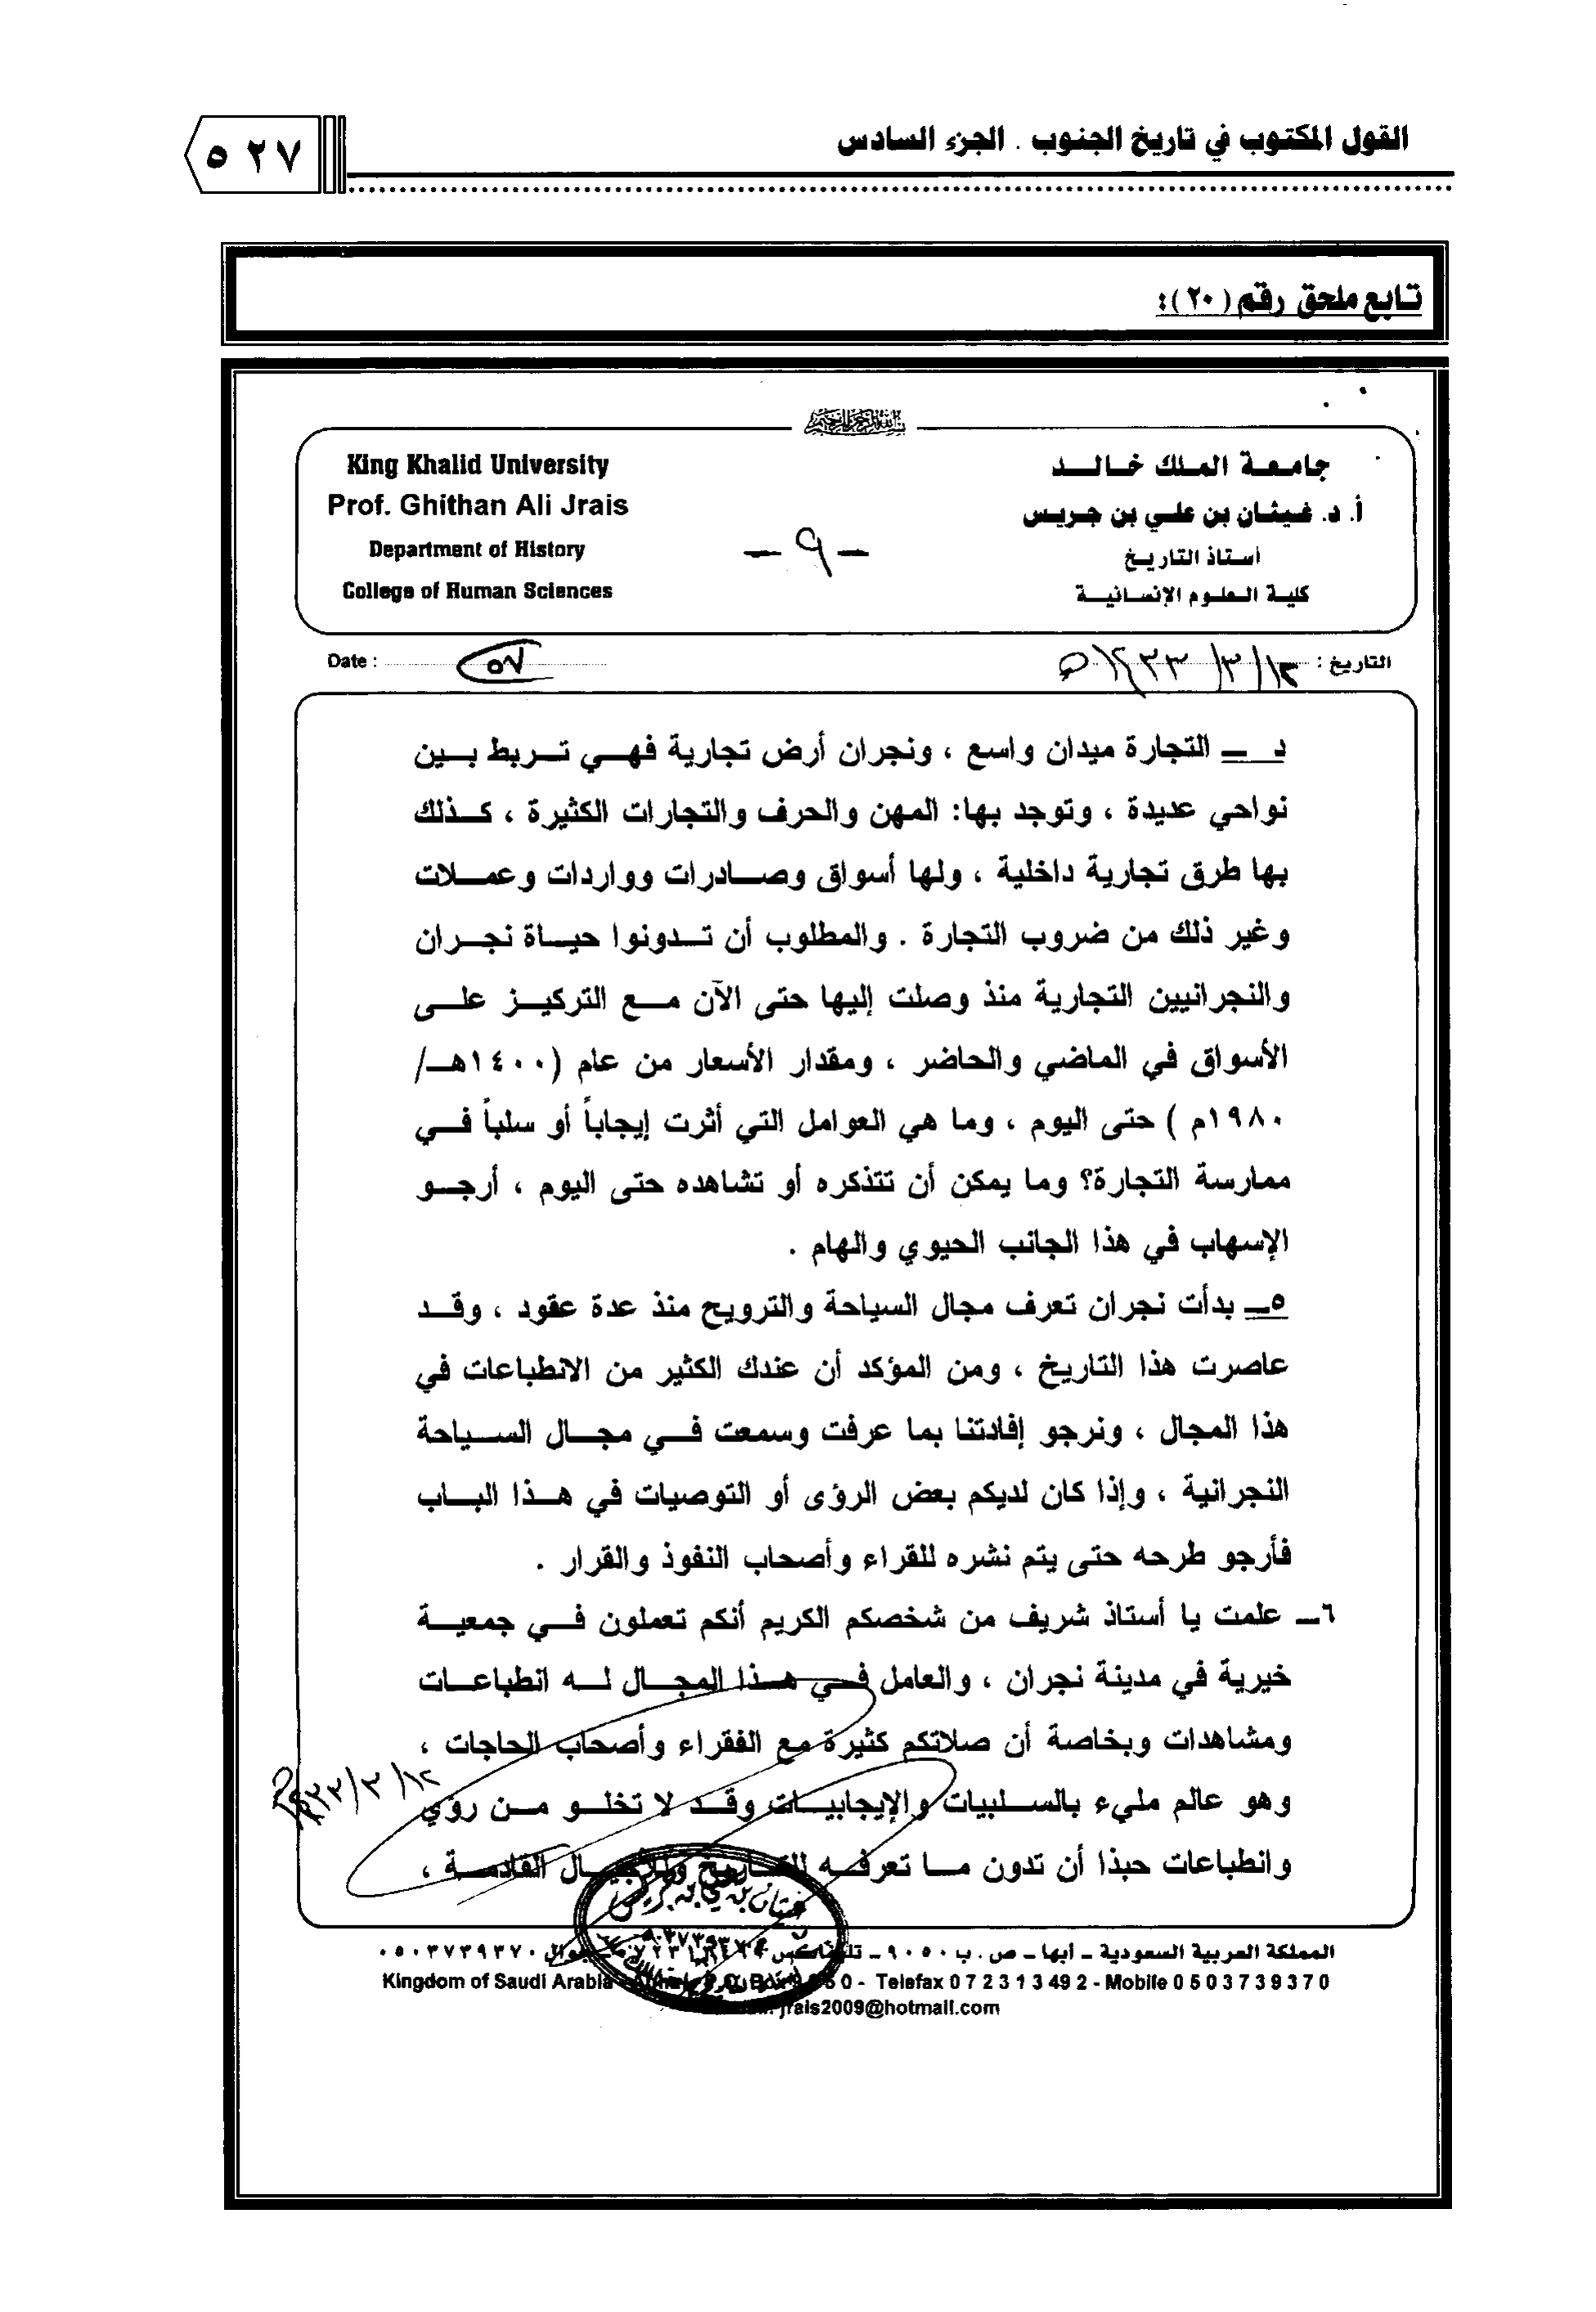 القول المكتوب في تاريخ الجنوب . الجزء السادس
٥٢٧
تابع ملحق رقم (٢٠):
بسم الله الرحمن الرحيم
جامعة الملك خالد
أ. د. غيثان بن علي بن جريس
أستاذ التاريخ
كلية العلوم الإنسانية
-٩-
King Khalid University
Prof. Ghithan Ali Jrais
Department of History
College of Human Sciences
التاريخ : ١٢/٣/١٤٣٣هـ
Date : ٥٧
د ــ التجارة ميدان واسع ، ونجران أرض تجارية فهي تربط بين
نواحي عديدة ، وتوجد بها: المهن والحرف والتجارات الكثيرة ، كذلك
بها طرق تجارية داخلية ، ولها أسواق وصادرات وواردات وعملات
وغير ذلك من ضروب التجارة . والمطلوب أن تدونوا حياة نجران
والنجرانيين التجارية منذ وصلت إليها حتى الآن مع التركيز على
الأسواق في الماضي والحاضر ، ومقدار الأسعار من عام (١٤٠٠هـ/
١٩٨٠م ) حتى اليوم ، وما هي العوامل التي أثرت إيجاباً أو سلباً في
ممارسة التجارة؟ وما يمكن أن تتذكره أو تشاهده حتى اليوم ، أرجو
الإسهاب في هذا الجانب الحيوي والهام .
٥ــ بدأت نجران تعرف مجال السياحة والترويح منذ عدة عقود ، وقد
عاصرت هذا التاريخ ، ومن المؤكد أن عندك الكثير من الانطباعات في
هذا المجال ، ونرجو إفادتنا بما عرفت وسمعت في مجال السياحة
النجرانية ، وإذا كان لديكم بعض الرؤى أو التوصيات في هذا الباب
فأرجو طرحه حتى يتم نشره للقراء وأصحاب النفوذ والقرار .
٦ــ علمت يا أستاذ شريف من شخصكم الكريم أنكم تعملون في جمعية
خيرية في مدينة نجران ، والعامل في هذا المجال له انطباعات
ومشاهدات وبخاصة أن صلاتكم كثيرة مع الفقراء وأصحاب الحاجات ،
وهو عالم مليء بالسلبيات والإيجابيات وقد لا تخلو من رؤي
وانطباعات حبذا أن تدون ما تعرفه للتاريخ وللأجيال القادمة ،
١٢/٣/١٤٣٣هـ
غيثان بن علي بن جريس
المملكة العربية السعودية – أبها – ص . ب ٩٠٥٠ – تلفاكس – جوال ٠٥٠٣٧٣٩٣٧٠
Kingdom of Saudi Arabia - Telefax 0 7 2 3 1 3 4 9 2 - Mobile 0 5 0 3 7 3 9 3 7 0
jrais2009@hotmail.com